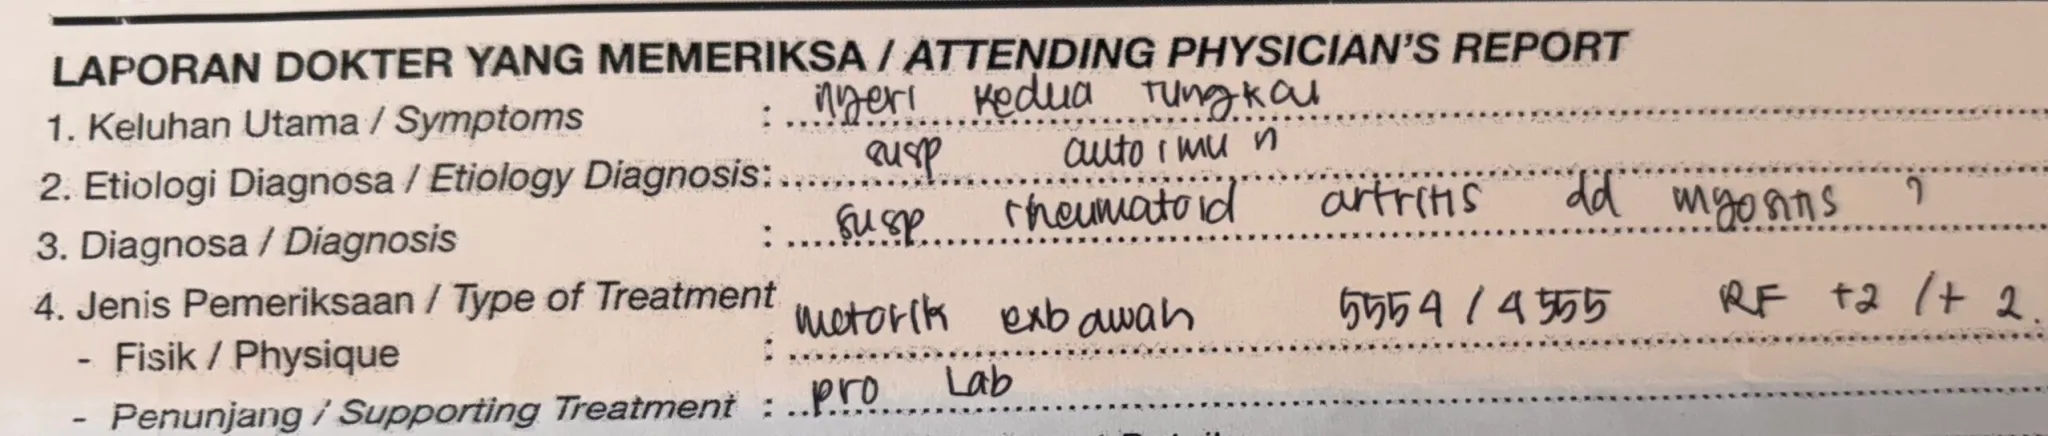 LAPORAN DOKTER YANG MEMERIKSA / ATTENDING PHYSICIAN'S REPORT
1. Keluhan Utama / Symptoms : nyeri kedua tungkai
2. Etiologi Diagnosa / Etiology Diagnosis: susp autoimun
3. Diagnosa / Diagnosis : susp rheumatoid artritis dd myositis ?
4. Jenis Pemeriksaan / Type of Treatment
- Fisik / Physique : motorik exbawah 5554 / 4555 RF +2 / + 2.
- Penunjang / Supporting Treatment : pro Lab